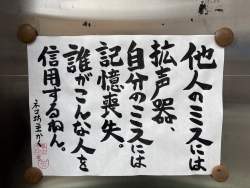 他人のミスには
拡声器、
自分のミスには
記憶喪失。
誰がこんな人を
信用するねん。